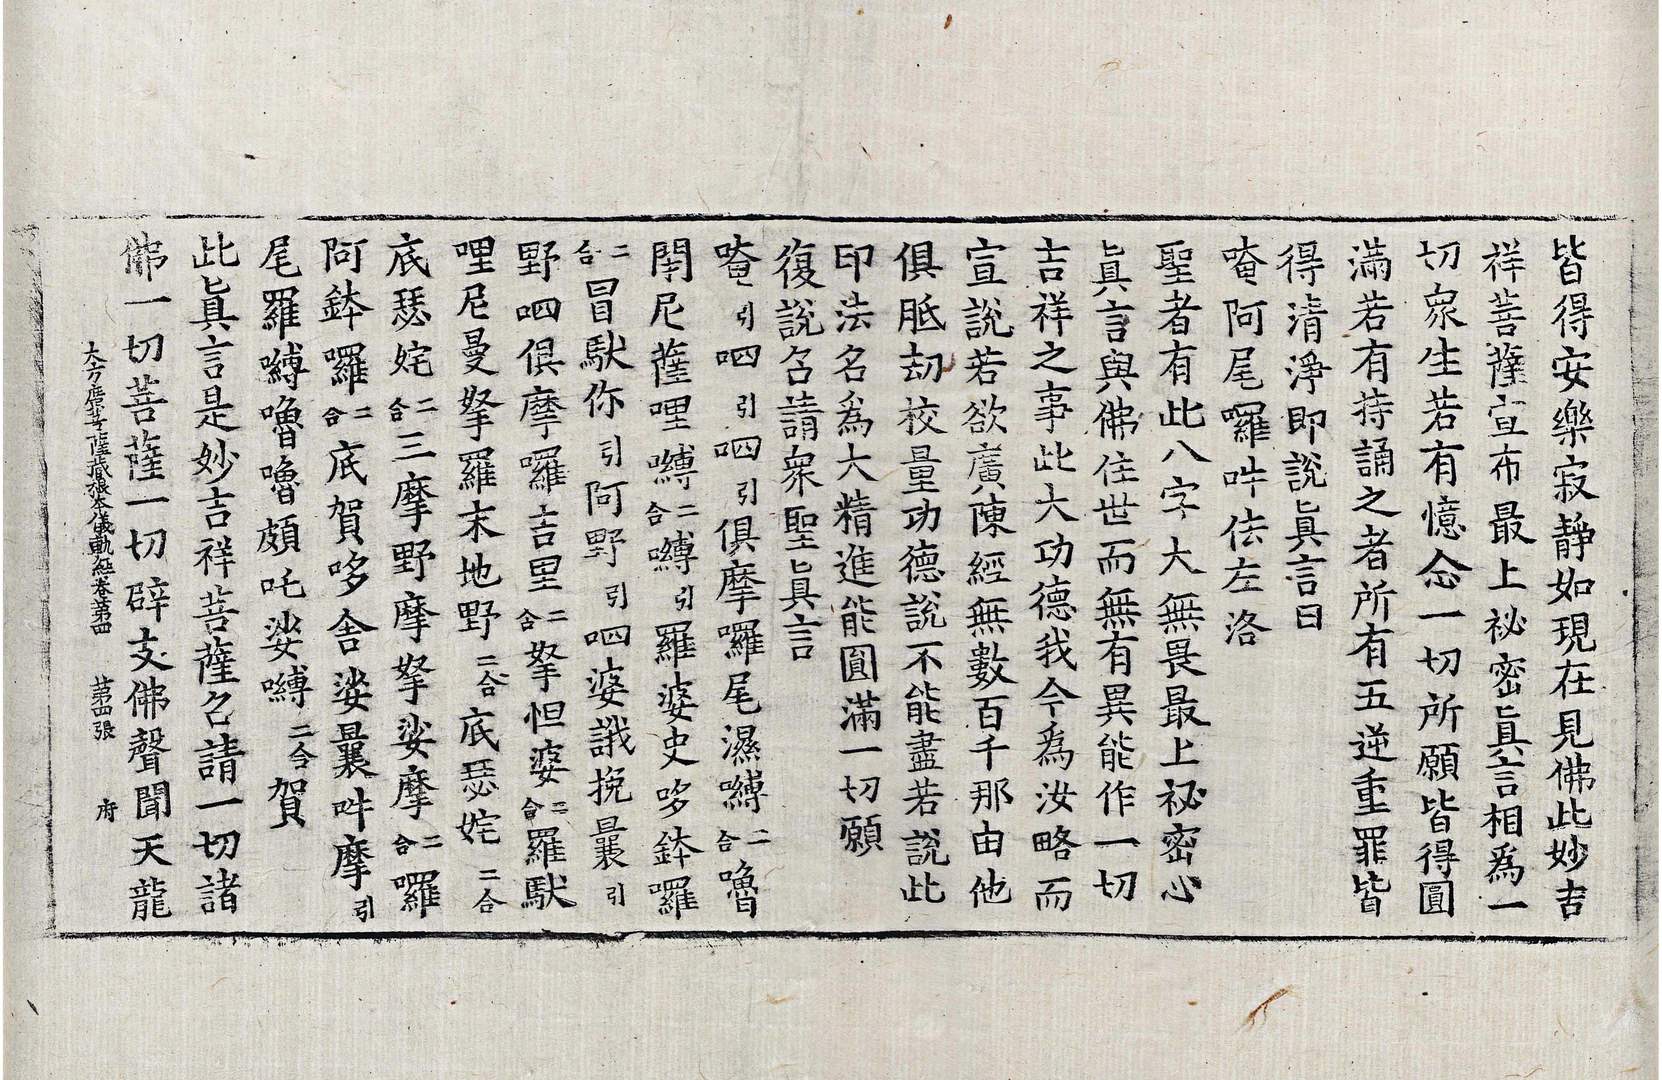 皆得安樂寂靜如現在見佛此妙吉
祥菩薩宣布最上祕密眞言相爲一
切衆生若有憶念一切所願皆得圓
滿若有持誦之者所有五逆重罪皆
得清淨即說眞言曰
唵阿尾囉吽佉左洛
聖者有此八字大無畏最上祕密心
眞言與佛住世而無有異能作一切
吉祥之事此大功德我今爲汝略而
宣說若欲廣陳經無數百千那由他
俱胝劫校量功德說不能盡若說此
印法名爲大精進能圓滿一切願
復說召請衆聖眞言
唵引呬引呬引俱摩囉尾濕嚩二合嚕
閉尼薩哩嚩二合嚩引羅婆史哆鉢囉
二合冒馱你引阿野引呬婆誐挽曩引
野呬俱摩囉吉里二合拏怛婆二合羅馱
哩尼曼拏羅末地野二合底瑟姹二合
底瑟姹二合三摩野摩拏娑摩二合囉
阿鉢囉二合底賀哆舍娑曩吽摩引
尾羅嚩嚕嚕頗吒娑嚩二合賀
此眞言是妙吉祥菩薩召請一切諸
佛一切菩薩一切辟支佛聲聞天龍
大方廣菩薩藏根本儀軌經卷第四 第四張 府